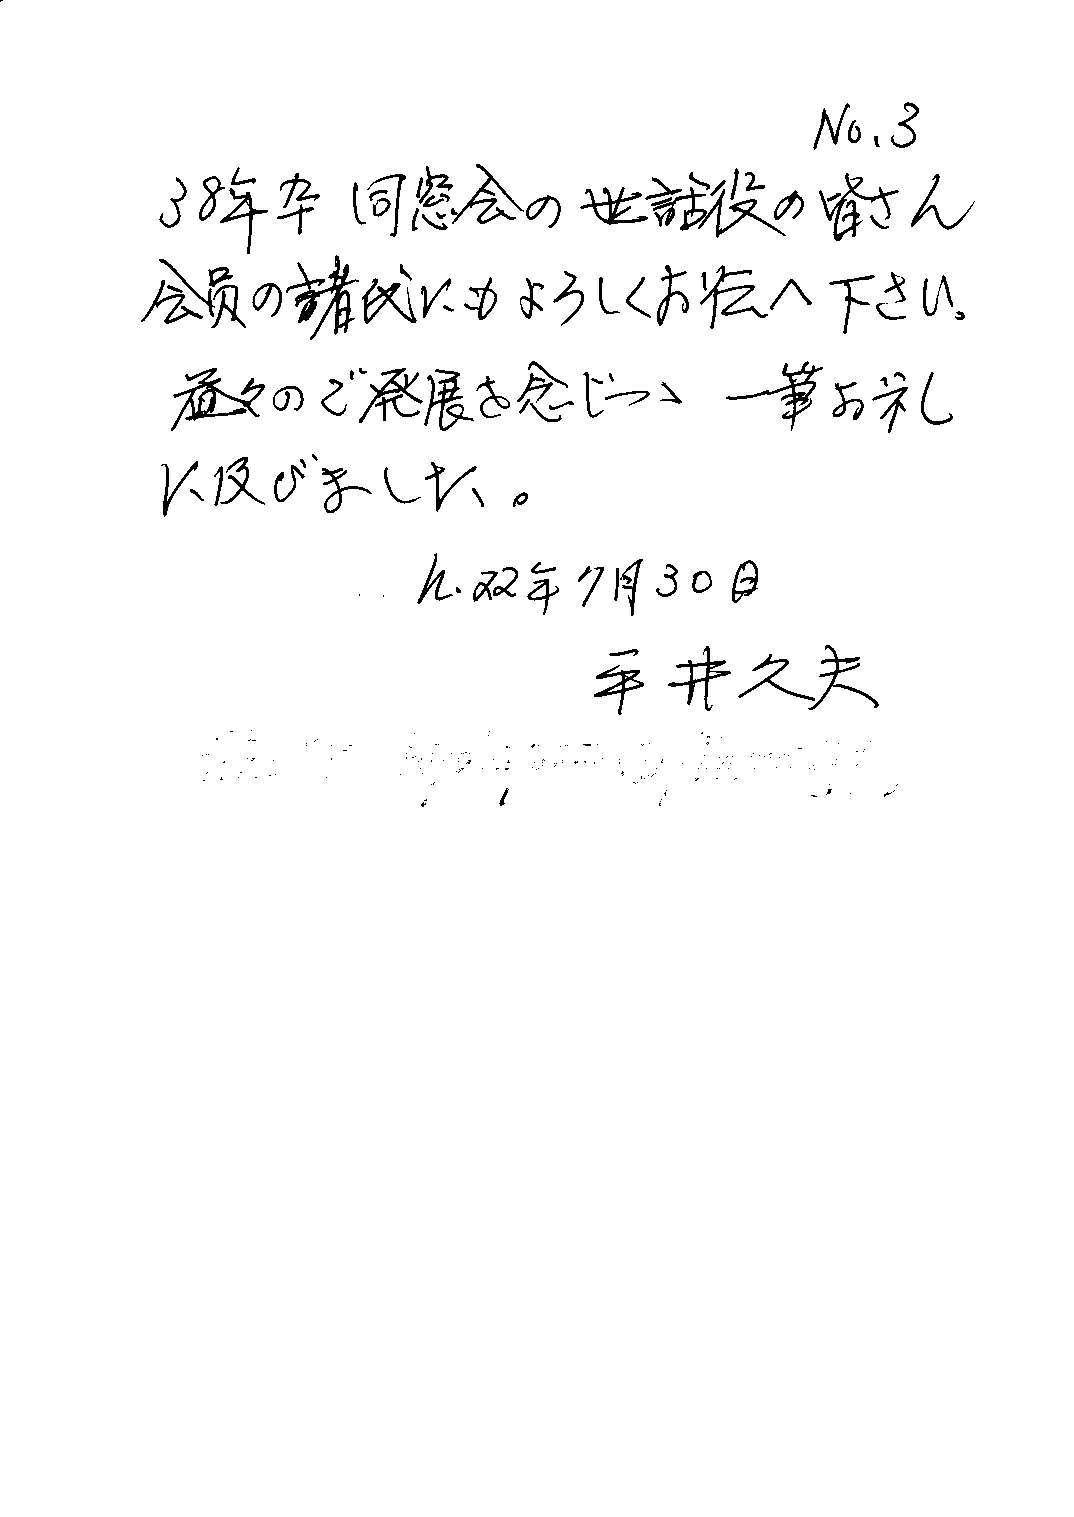 No.3
38年卆 同窓会の世話役の皆さん
会員の諸氏にもよろしくお伝へ下さい。
益々のご発展を念じつゝ 一筆お礼
に及びました。
h.22年7月30日
平井久夫